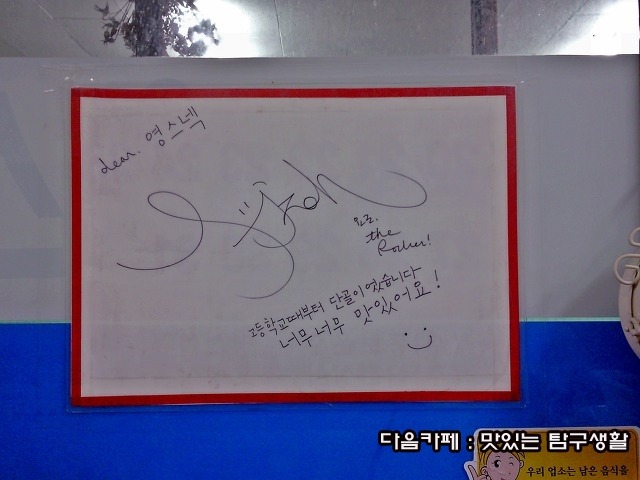 dear. 영스넥
요조.
the
Rocker!
고등학교때부터 단골이었습니다
너무너무 맛있어요!
다음카페 : 맛있는 탐구생활
우리 업소는 남은 음식을